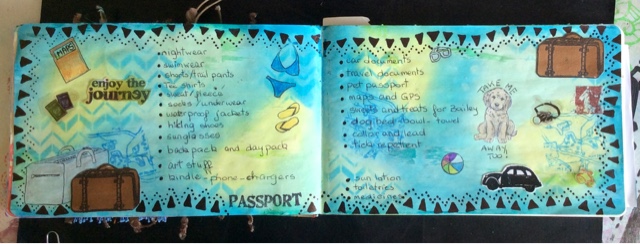 MAPS
enjoy the
journey
nightwear
swimwear
shorts/trail pants
Tee shirts
sweat/fleece
socks/underwear
waterproof jackets
hiking shoes
sunglasses
backpack and daypack
art stuff
kindle-phone-chargers
PASSPORT
car documents
travel documents
pet passport
maps and GPS
sweets and treats for Bailey
dog bed-bowl-towel
collar and lead
tick
TAKE ME
AWAY,
TOO!
sun lotion
toiletries
medicines